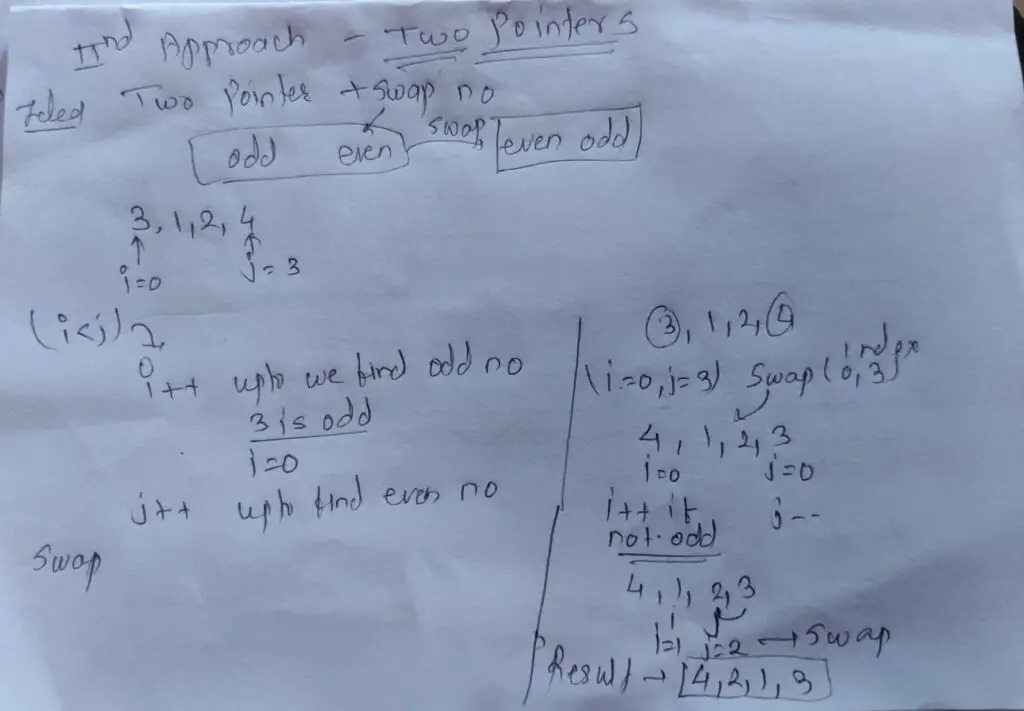 IInd Approach - Two Pointers
Idea Two Pointer + swap no
odd even swap even odd
3, 1, 2, 4
i=0 j=3
(i<j)
0
i++ upto we find odd no
3 is odd
i=0
j++ upto find even no
Swap
3, 1, 2, 4
(i=0, j=3) Swap (0, 3) index
4, 1, 2, 3
i=0 j=0
i++ if j--
not odd
4, 1, 2, 3
i=1 j=2 → swap
Result → [4, 2, 1, 3]